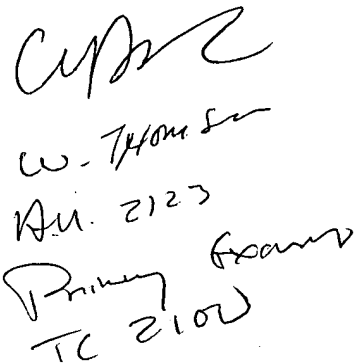 W. Thomson
A.U. 2123
Primary Examiner
TC 2100